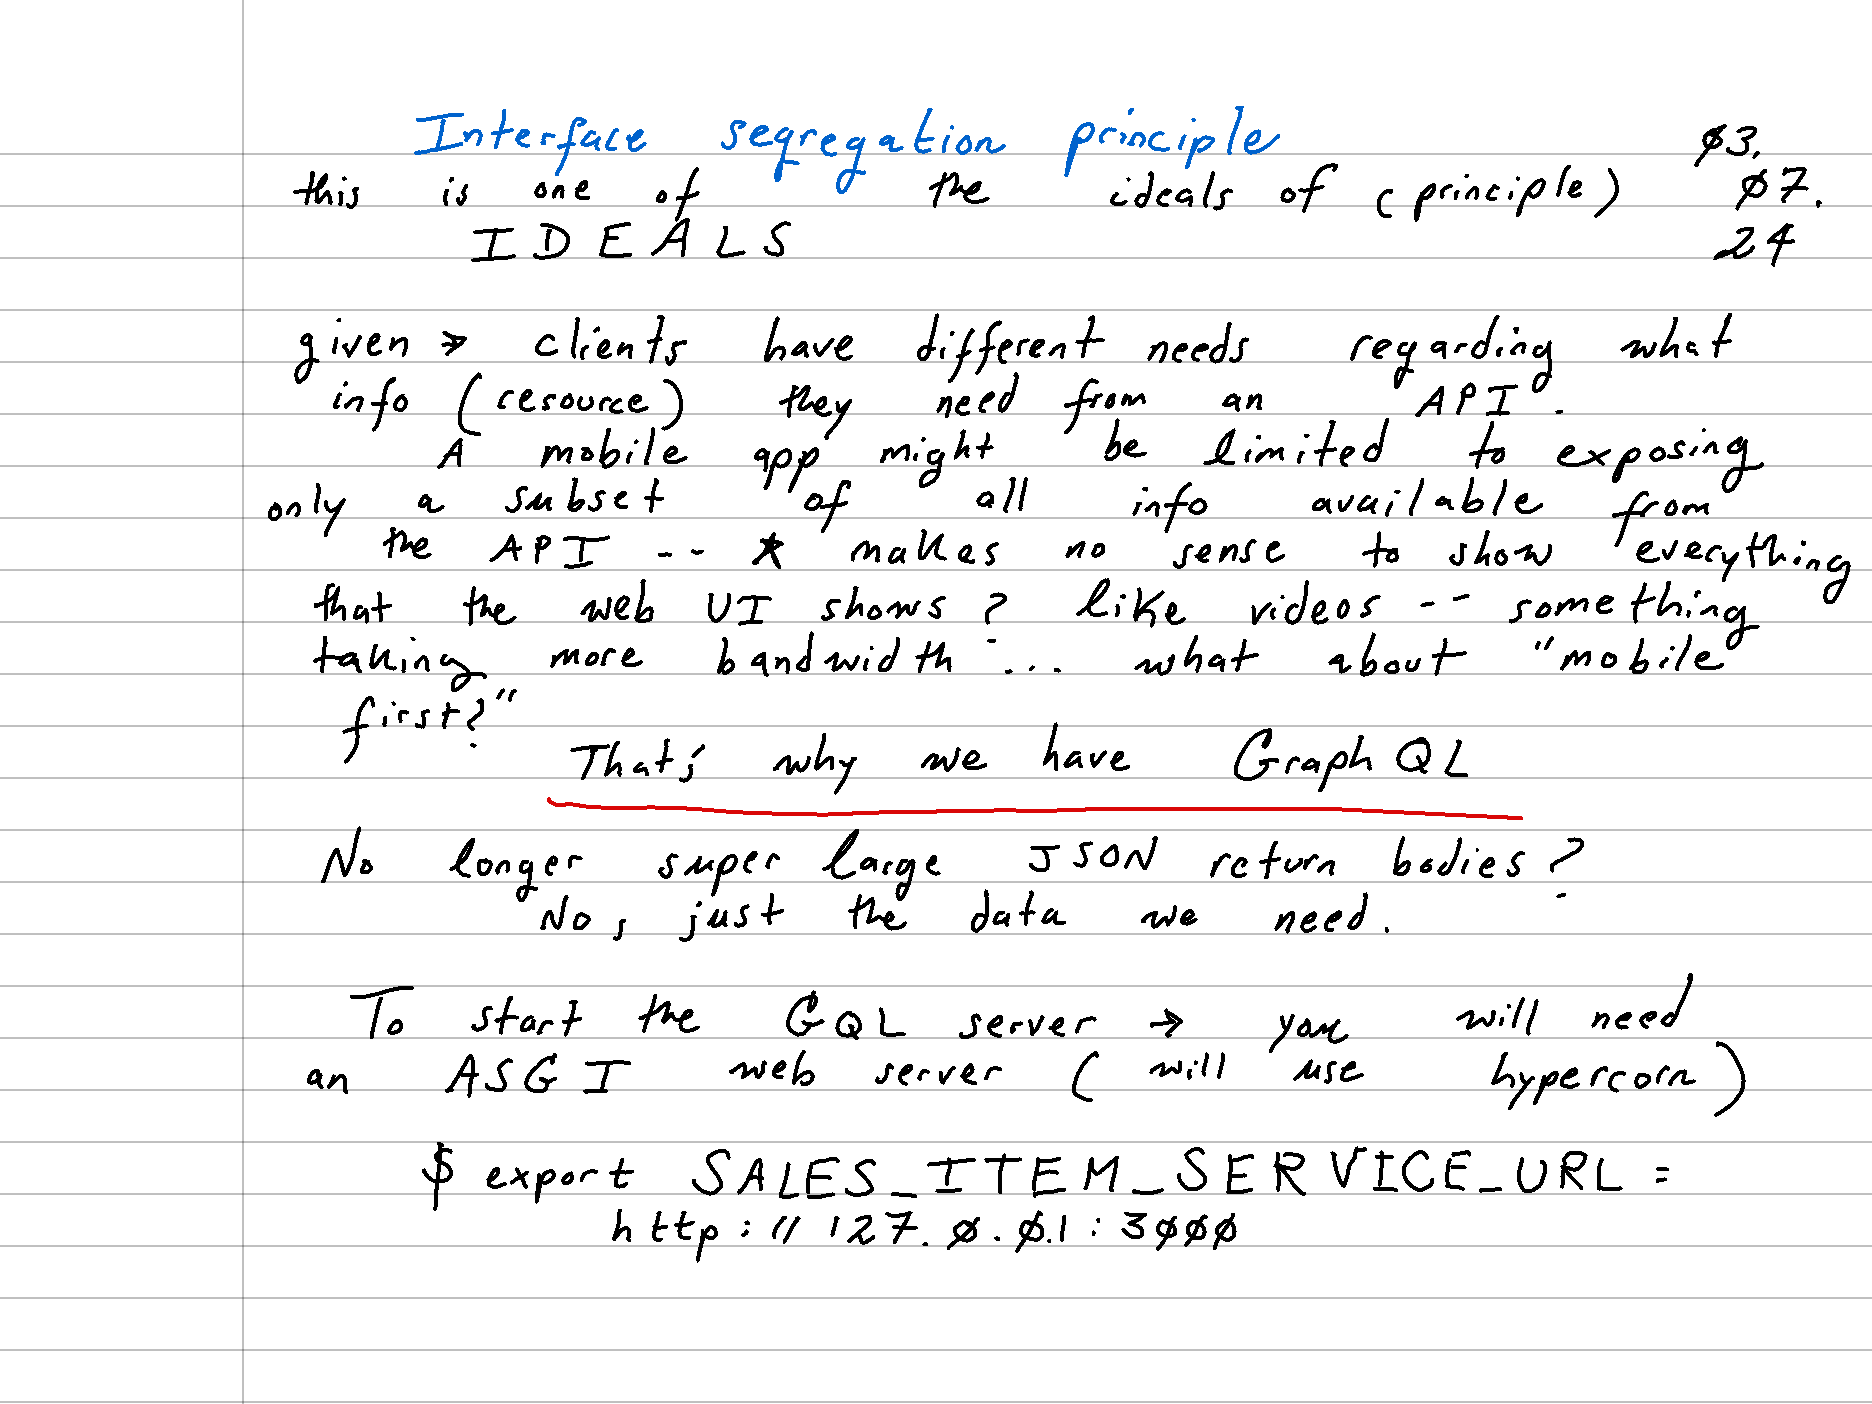 Interface segregation principle
ø3.
this is one of the ideals of (principle)
ø7.
IDEALS
24
given → clients have different needs regarding what
info (resource) they need from an API.
A mobile app might be limited to exposing
only a subset of all info available from
the API -- * makes no sense to show everything
that the web UI shows? like videos -- something
taking more bandwidth ... what about "mobile
first?"
That's why we have GraphQL
No longer super large JSON return bodies?
No, just the data we need.
To start the GQL server → you will need
an ASGI web server (will use hypercorn)
$ export SALES_ITEM_SERVICE_URL =
http://127.ø.ø.1:3øøø